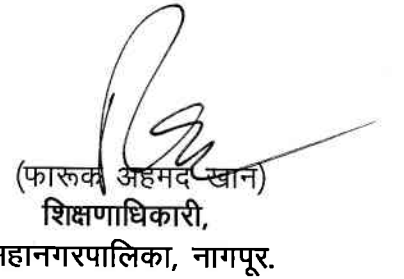 (फारूक अहमद खान)
शिक्षणाधिकारी,
महानगरपालिका, नागपूर.